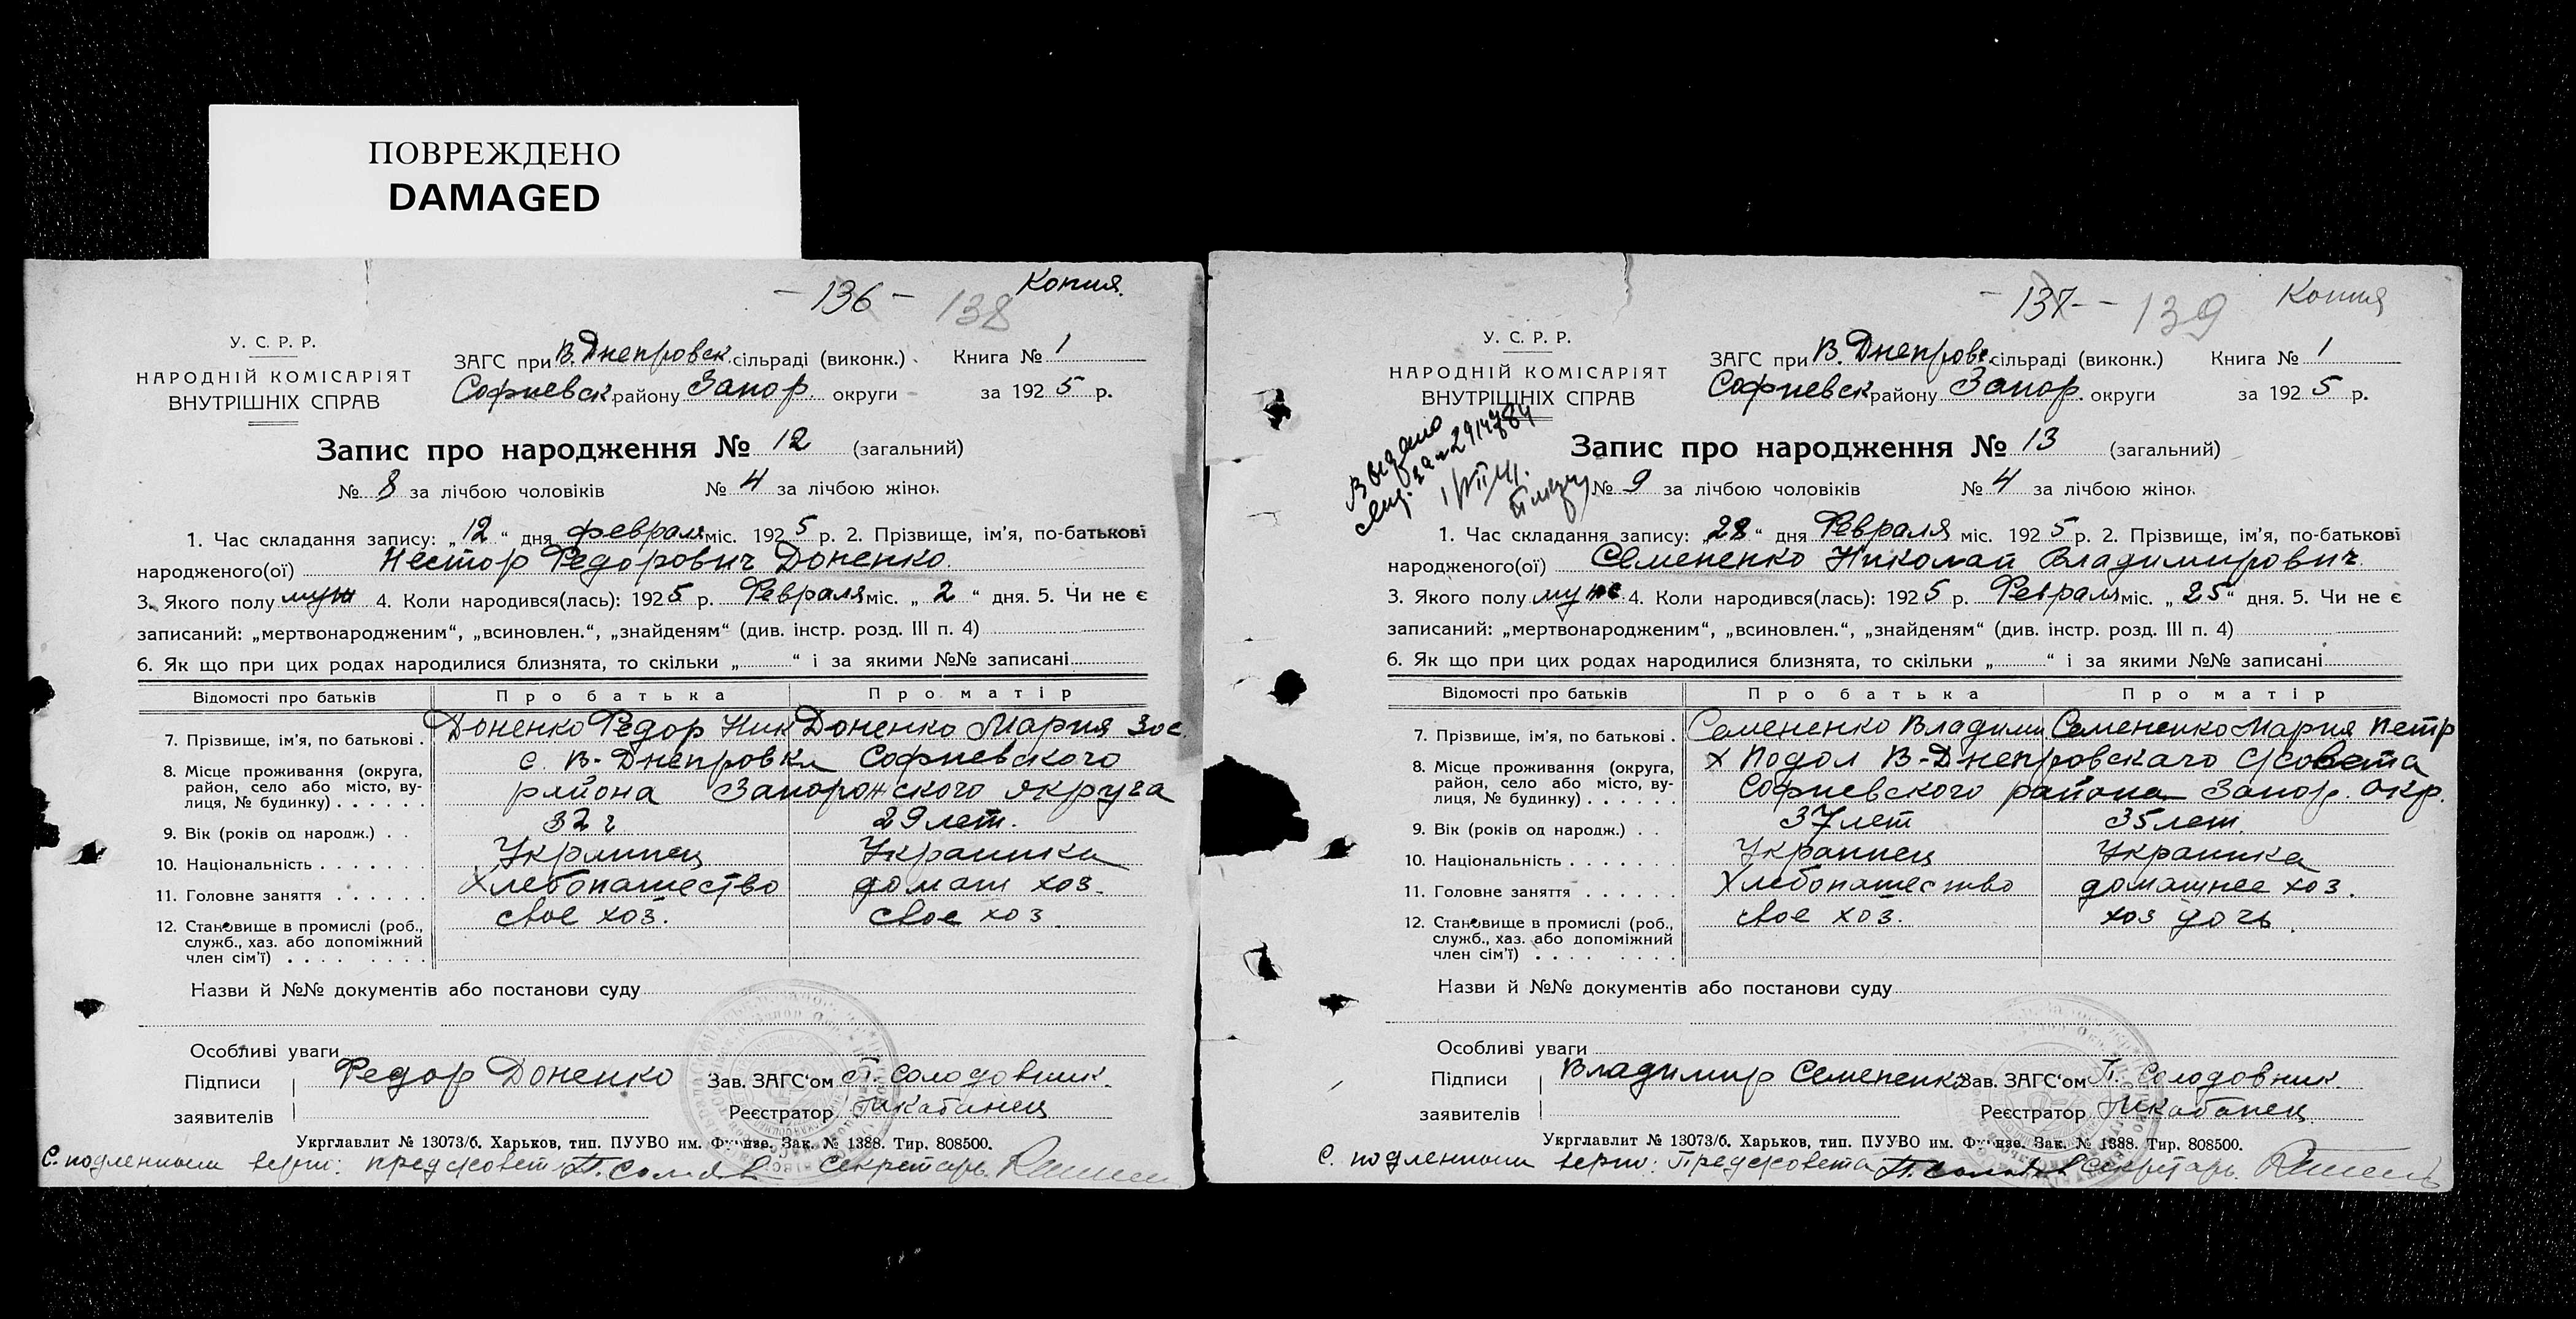 ПОВРЕЖДЕНО
DAMAGED
— 136 — 138 Копия.
У. С. Р. Р.
НАРОДНІЙ КОМІСАРІЯТ
ВНУТРІШНІХ СПРАВ
ЗАГС при В. Днепровск. сільраді (виконк.) Книга № 1
Софиевск району Запор округи за 1925 р.
Запис про народження № 12 (загальний)
№ 8 за лічбою чоловіків № 4 за лічбою жінок
1. Час складання запису: „12“ дня февраля міс. 1925 р. 2. Прізвище, ім’я, по-батькові
народженого(ої) Нестор Федорович Доненко.
3. Якого полу муж 4. Коли народився(лась): 1925 р. Февраля міс. „2“ дня. 5. Чи не є
записаний: „мертвонародженим“, „всиновлен.“, „знайденям“ (див. інстр. розд. III п. 4)
6. Як що при цих родах народилися близнята, то скільки „ “ і за якими №№ записані
Відомості про батьків Про батька Про матір
7. Прізвище, ім’я, по батькові . Доненко Федор Ник Доненко Мария Зос.
8. Місце проживання (округа, район, село або місто, вулиця, № будинку) . . . . . . с. В-Днепровка Софиевского
района Запорожского якруга
9. Вік (років од народж.) . . 32 г 29 лет.
10. Національність . . . . . . Украинец Украинка
11. Головне заняття . . . . . . Хлебопашество домаш хоз.
12. Становище в промислі (роб., служб., хаз. або допоміжний член сім’ї) . . . . свое хоз. свое хоз
Назви й №№ документів або постанови суду
Особливі уваги
Підписи заявителів Федор Доненко Зав. ЗАГС‘ом П. Солодовник.
Реєстратор Шкабанец
Укрглавлит № 13073/б. Харьков, тип. ПУУВО им. Фрунзе. Зак. № 1388. Тир. 808500.
С. подленным верно: предсовета Секретарь
— 137 — 139 Копия
У. С. Р. Р.
НАРОДНІЙ КОМІСАРІЯТ
ВНУТРІШНІХ СПРАВ
ЗАГС при В. Днепровс. сільраді (виконк.) Книга № 1
Софиевск району Запор. округи за 1925 р.
Выдано
Запис про народження № 13 (загальний)
№ 9 за лічбою чоловіків № 4 за лічбою жінок
1. Час складання запису: „28“ дня Февраля міс. 1925 р. 2. Прізвище, ім’я, по-батькові
народженого(ої) Семененко Николай Владимирович
3. Якого полу муж 4. Коли народився(лась): 1925 р. Февраля міс. „25“ дня. 5. Чи не є
записаний: „мертвонародженим“, „всиновлен.“, „знайденям“ (див. інстр. розд. III п. 4)
6. Як що при цих родах народилися близнята, то скільки „ “ і за якими №№ записані
Відомості про батьків Про батька Про матір
7. Прізвище, ім’я, по батькові . Семененко Владими Семененко Мария Петр
8. Місце проживання (округа, район, село або місто, вулиця, № будинку) . . . . . . х Подол В-Днепровскаго С/совета
Софиевского района Запор. окр.
9. Вік (років од народж.) . . 37 лет 35 лет.
10. Національність . . . . . . . Украинец Украинка
11. Головне заняття . . . . . Хлебопашество домашнее хоз.
12. Становище в промислі (роб., служб., хаз. або допоміжний член сім’ї) . . . . свое хоз. хоз дочь.
Назви й №№ документів або постанови суду
Особливі уваги
Підписи заявителів Владимир Семененко Зав. ЗАГС‘ом П. Солодовник.
Реєстратор Шкабанец
Укрглавлит № 13073/б. Харьков, тип. ПУУВО им. Фрунзе. Зак. № 1388. Тир. 808500.
С. подленным верно: Предсовета Секретарь.